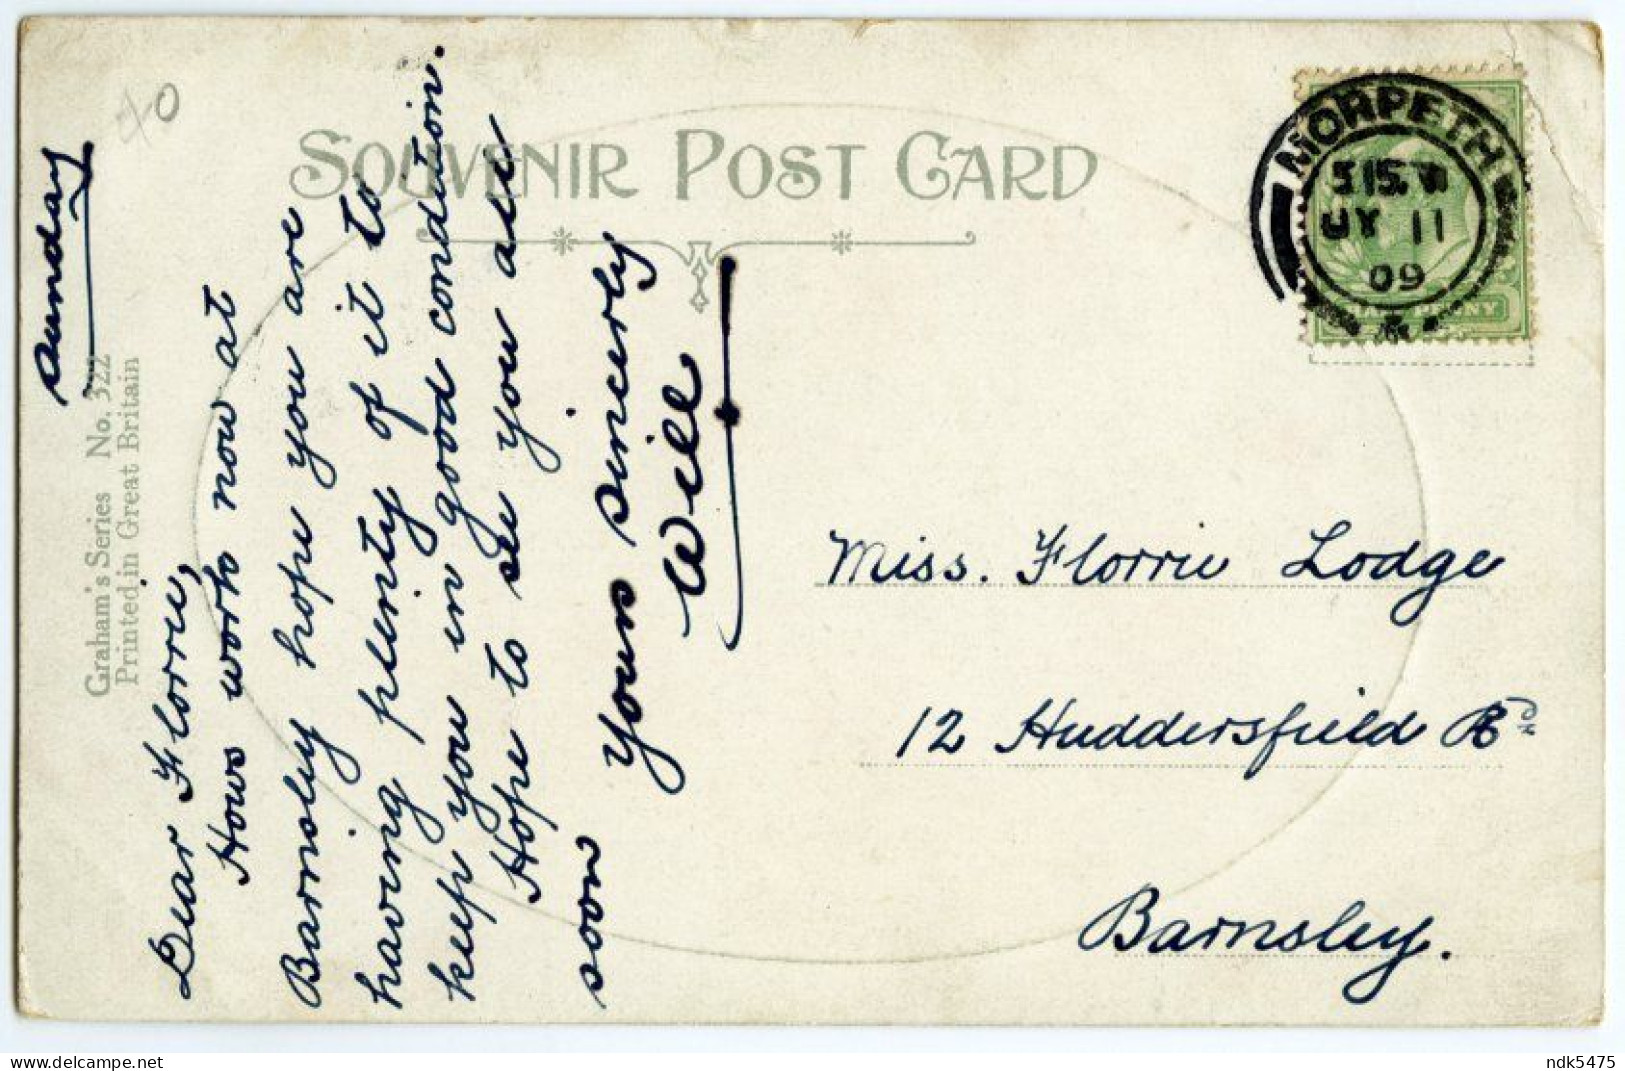 40
SOUVENIR POST CARD
Graham's Series No. 322
Printed in Great Britain
Sunday
Dear Florrie,
Hows work now at
Barnsley hope you are
having plenty of it to
keep you in good condution.
Hope to see you all
soon
yours sincerly
Will
MORPETH
JY 11
09
Miss. Florrie Lodge
12 Huddersfield Rd
Barnsley.
www.delcampe.net
ndk5475